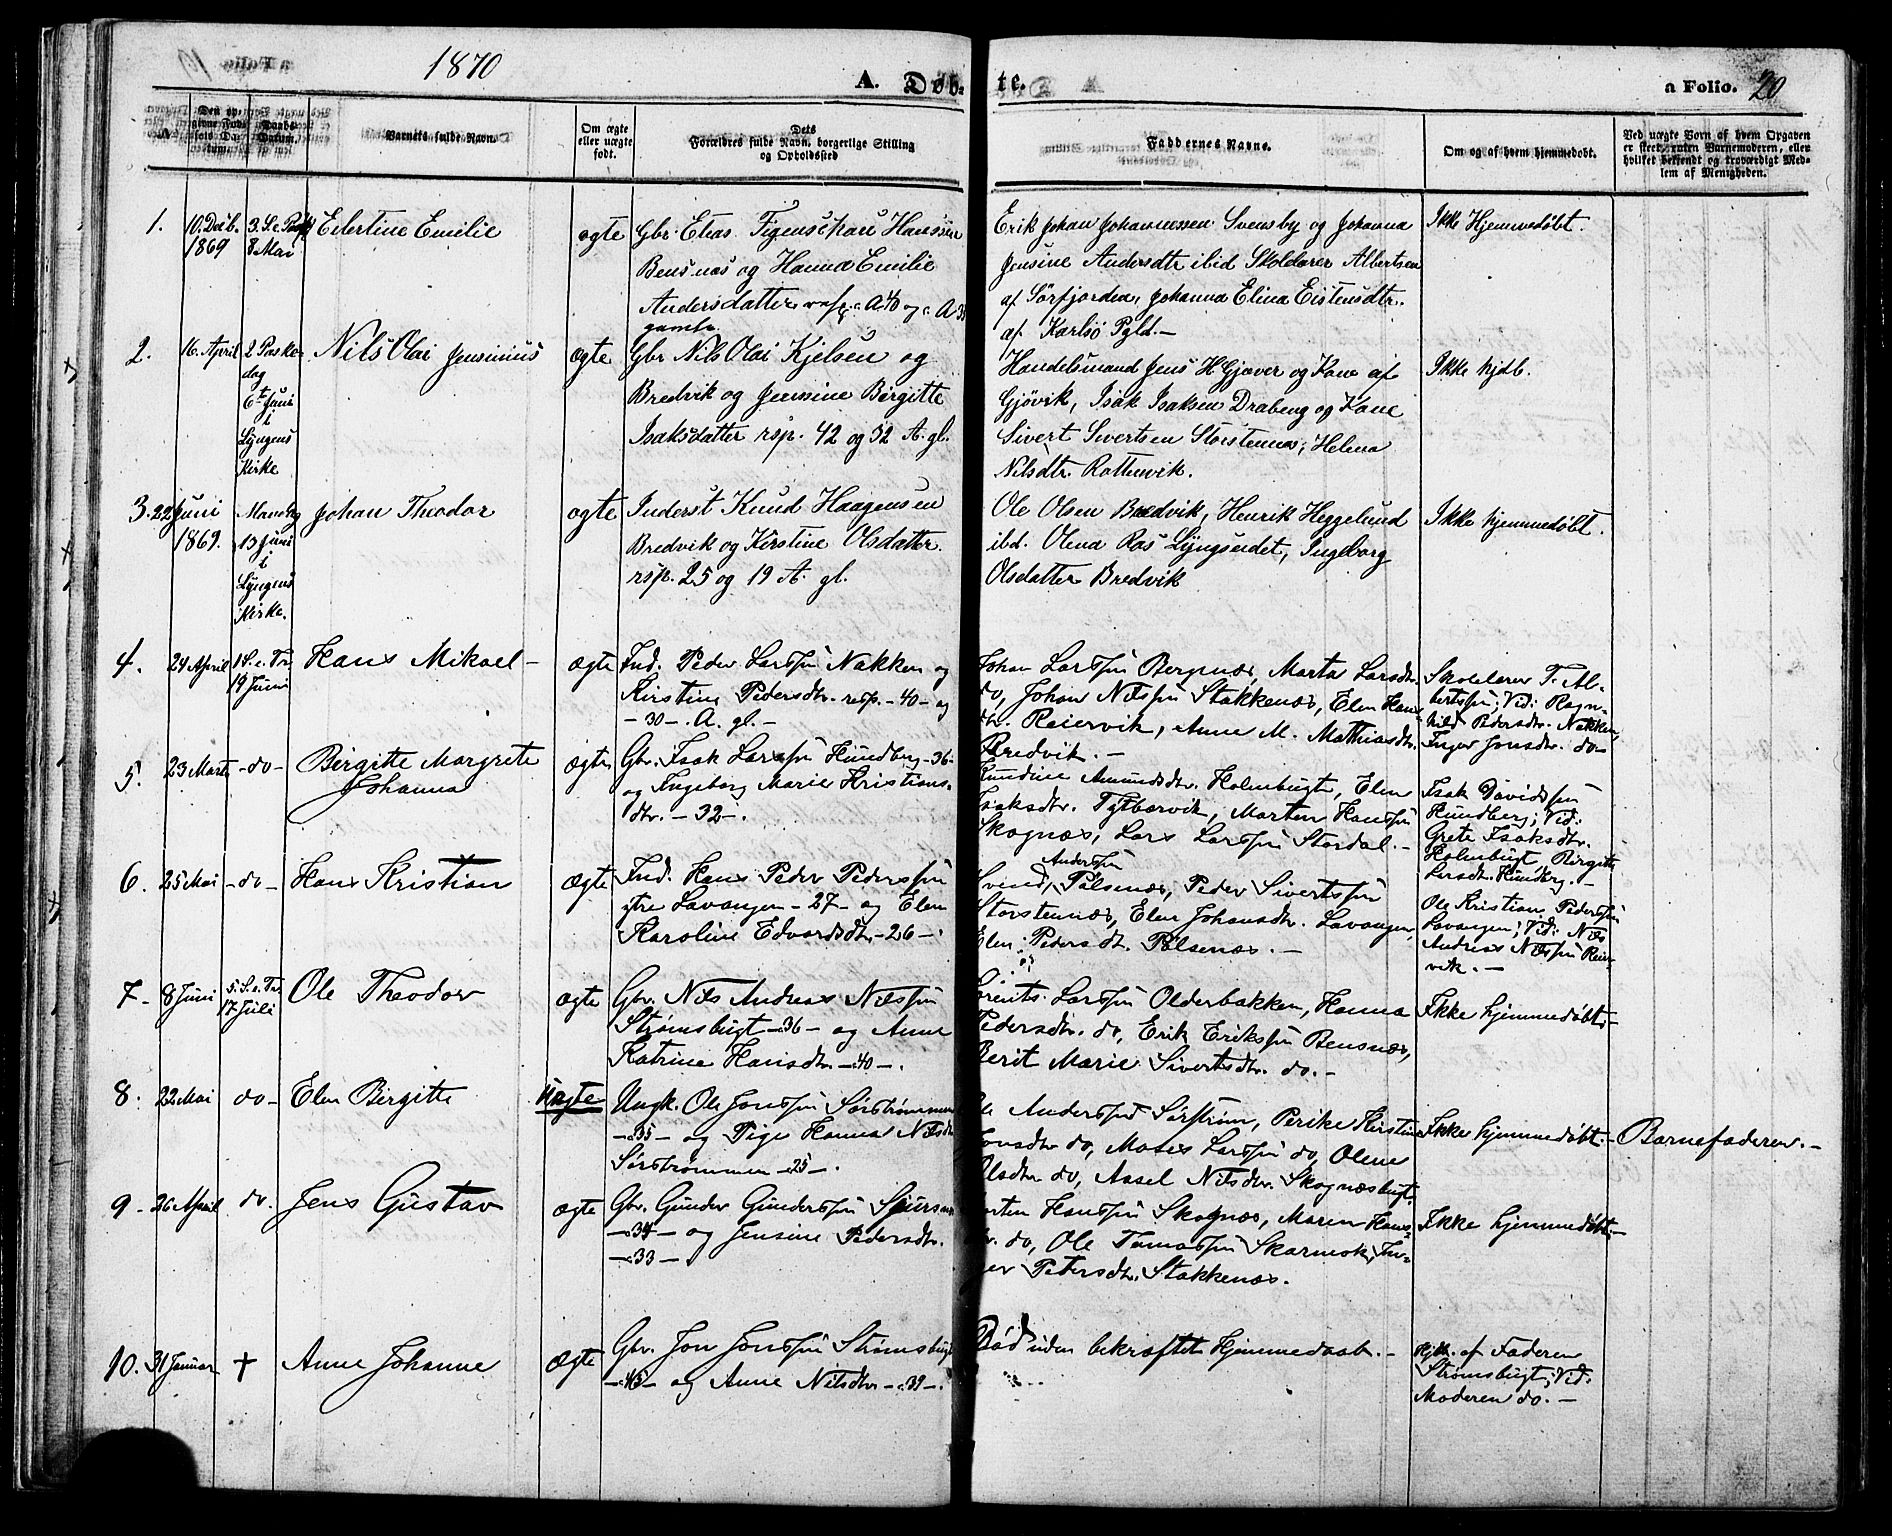 1870
A. Døb-
te.
a Folio. 20
Den opgivne Fødsels Datum.
Daabs Datum.
Varnets fulde Navn.
Om ægte eller uægte født.
Dets Forældres fulde Navn, borgerlige Stilling og Opholdssted
Faddernes Navne.
Om og af hvem hjemmedøbt.
Ved uægte Børn af hvem Opgaven er skeet, enten Barnemoderen, eller hvilket bekjendt og troværdigt Medlem af Menigheden.
1. 10. Decb. 1869
3. S. e. Paask 8 Mai
Eilertine Emilie
ogte
Gbr. Elias Hanssen
Bensnæs og Hanna Emilie
Andersdatter A 40 og A 38
gamle.
Erik Johan Johannessen Svensby og Johanna
Jensine Andersdtr ibid Skolelærer Albertsen
af Sørfjorden, Johanna Elina Eistensdtr.
af Karlsø Pgld. —
Ikke Hjemmedøbt.
2. 16. April
2 Paske-
dag
6t Juni
i
Lyngens
Kirke
Nils Olai Jensinius
ægte
Gbr Nils Olai Kjelsen og
Bredvik og Jensine Birgitte
Isaksdatter rsp. 42 og 32 A. gl.
Handelsmand Jens H Gjæver og Kone af
Gjövik, Isak Isaksen Draberg og Kone
Sivert Sivertsen Storstennæs, Helena
Nilsdtr. Rottenvik.
Ikke hjdb.
3. 22 Juni
1869.
Mandag
13 Juni
i
Lyngens
Kirke.
Johan Theodor
ogte
Inderst Knud Haagensen
Bredvik og Kirstine Olsdatter.
rsp. 25 og 19 A. gl.
Ole Olsen Bredvik, Henrik Heggelund
ibd. Olena Ros Lyngseidet, Ingeborg
Olsdatter Bredvik
Ikke hjemmedøbt.
4. 24 April
1 S. e. Tr.
19 Juni
Hans Mikael —
ægte
Ind. Peder Larssøn Nakken og
Kirstine Pedersdtr. resp. - 40 - og
- 30 - A. gl. -
Johan Larssøn Bergnæs, Marta Larsdtr.
do, Johan Nilssøn Stakkenæs, Elen Hans-
dtr. Reiervik, Anne M. Mathiasdtr.
Bredvik. —
Skolelærer T. Al-
bertssøn; Vid: Ragn-
hild Pedersdtr. Nakken,
Inger Jonsdtr. do —
5. 23 Marts
- do -
Birgitte Margrete
Johanna
ægte
Gbr. Isak Larssøn Hundberg - 36 -
og Ingeborg Marie Kristians-
dtr. - 32 -.
Gundine Amundsdtr. Holmbugt, Elen
Isaksdtr. Tytbærvik, Morten Hanssøn
Skognæs, Lars Larssøn Stordal. —
Isak Davidssøn
Hundberg; Vid:
Grete Isaksdtr.
Holmbugt, Birgitte
Larsdtr. Hundberg. —
6. 25 Mai
- do -
Hans Kristian
ægte
Ind. Hans Peder Pederssøn
ytre Lavangen - 27 - og Elen
Karoline Edvardsdtr. - 26 -.
Anderssøn
Svend, Pølsenæs, Peder Sivertssøn
Storstennæs, Elen Johansdtr. Lavangen,
Elen Pedersdt. Pølsenæs. —
Ole Kristian Pederssøn
Lavangen; Vid: Nils
Andreas Nilssøn Reier-
vik. —
7 - 8 Juni
5. S. e. Tr.
17 Juli
Ole Theodor
ægte
Gbr. Nils Andreas Nilssøn
Strømsbugt - 36 - og Anne
Katrine Hansdtr - 40 -.
Lorents Larssøn Olderbakken, Hanna
Pedersdtr. do, Erik Erikssøn Bensnæs,
Berit Marie Sivertsdtr. do. —
Ikke hjemmedøbt —
8. 22 Mai
do -
Elen Birgitte
Uægte
Ungk. Ole Jonssøn Sørstrømmen
- 35 - og Pige Hanna Nilsdtr
Sørstrømmen - 25 -.
Ole Anderssøn Sørstrøm, Perike Kirstine
Jonsdtr do, Moses Larssøn do, Olene
Olsdtr do, Assel Nilsdtr. Skognæsbugt.
Ikke hjemmedøbt. —
Barnefaderen. —
9 - 26 April
do.
Jens Gustav
ægte
Gbr. Gunder Gunderssøn Spursnæs
- 34 - og Jensine Pedersdtr.
- 33 -
Morten Hanssøn Skognæs, Maren Hans-
dtr. do, Ole Tomassøn Skarmok, In-
ger Petersdtr. Stakkenæs.
Ikke hjemmedøbt. —
10. 31 Januar
+
Anne Johanne
ægte
Gbr. Jon Jonssøn Strømsbugt
- 45 - og Anne Nilsdtr. - 39 -.
Død uden bekræftet Hjemmedaab. —
Hjdb. af Faderen
Strømsbugt; Vid:
Moderen do. —